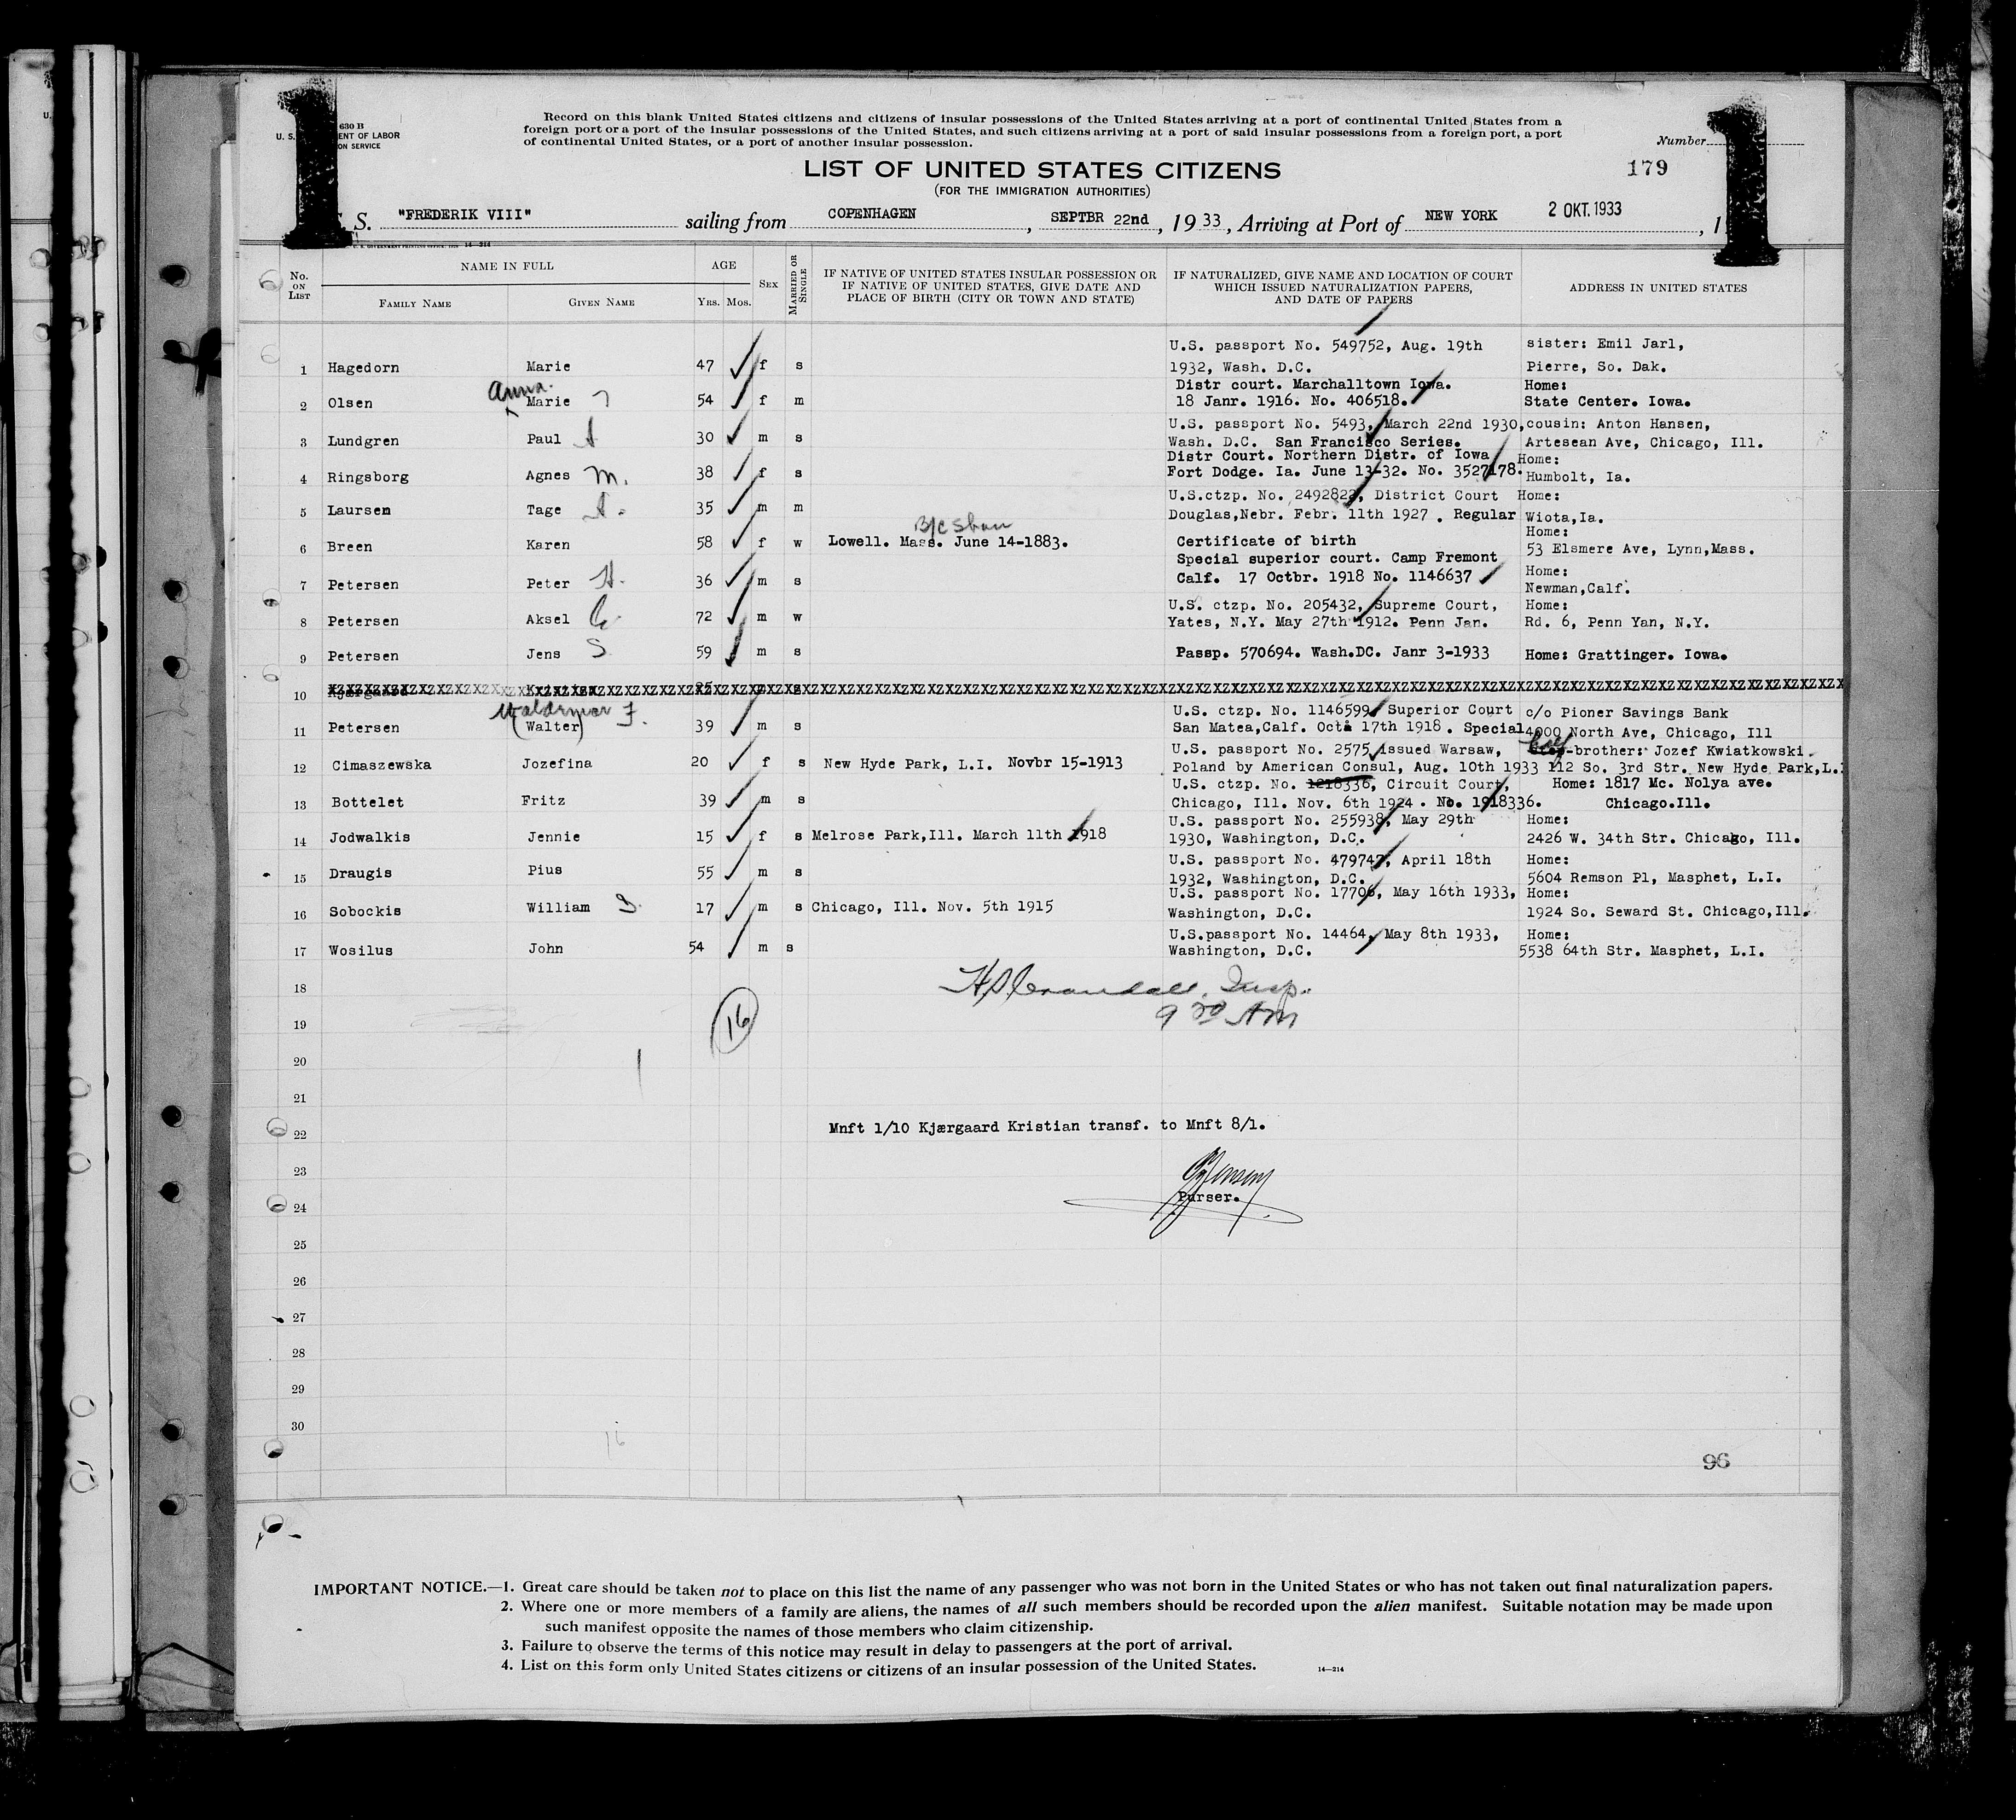 1 1
630 B
U. S. ENT OF LABOR
ON SERVICE
Record on this blank United States citizens and citizens of insular possessions of the United States arriving at a port of continental United States from a
foreign port or a port of the insular possessions of the United States, and such citizens arriving at a port of said insular possessions from a foreign port, a port
of continental United States, or a port of another insular possession.
Number
179
LIST OF UNITED STATES CITIZENS
(FOR THE IMMIGRATION AUTHORITIES)
S. "FREDERIK VIII" sailing from COPENHAGEN, SEPTBR 22nd, 1933, Arriving at Port of NEW YORK 2 OKT. 1933, 1
14—214
No. ON LIST NAME IN FULL AGE SEX MARRIED OR SINGLE IF NATIVE OF UNITED STATES INSULAR POSSESSION OR IF NATIVE OF UNITED STATES, GIVE DATE AND PLACE OF BIRTH (CITY OR TOWN AND STATE) IF NATURALIZED, GIVE NAME AND LOCATION OF COURT WHICH ISSUED NATURALIZATION PAPERS, AND DATE OF PAPERS ADDRESS IN UNITED STATES
FAMILY NAME GIVEN NAME YRS. MOS.
U.S. passport No. 549752, Aug. 19th sister: Emil Jarl,
1 Hagedorn Marie 47 f s 1932, Wash. D.C. Pierre, So. Dak.
Anna Distr court. Marchalltown Iowa. Home:
2 Olsen Marie 54 f m 18 Janr. 1916. No. 406518. State Center. Iowa.
U.S. passport No. 5493, March 22nd 1930, cousin: Anton Hansen,
3 Lundgren Paul 30 m s Wash. D.C. San Francisco Series. Artesean Ave, Chicago, Ill.
Distr Court. Northern Distr. of Iowa Home:
4 Ringsborg Agnes M. 38 f s Fort Dodge. Ia. June 13-32. No. 3527178. Humbolt, Ia.
U.S.ctzp. No. 2492822, District Court Home:
5 Laursen Tage 35 m m Douglas,Nebr. Febr. 11th 1927 . Regular Wiota,Ia.
B/C Shown Home:
6 Breen Karen 58 f w Lowell. Mass. June 14-1883. Certificate of birth 53 Elsmere Ave, Lynn,Mass.
Special superior court. Camp Fremont Home:
7 Petersen Peter H. 36 m s Calf. 17 Octbr. 1918 No. 1146637 Newman,Calf.
U.S. ctzp. No. 205432, Supreme Court, Home:
8 Petersen Aksel 72 m w Yates, N.Y. May 27th 1912. Penn Jan. Rd. 6, Penn Yan, N.Y.
9 Petersen Jens S 59 m s Passp. 570694. Wash.DC. Janr 3-1933 Home: Grattinger. Iowa.
10 Kjærgaard Kristian 25
Waldemar F. U.S. ctzp. No. 1146599, Superior Court c/o Pioner Savings Bank
11 Petersen (Walter) 39 m s San Matea,Calf. Oct. 17th 1918 . Special 4000 North Ave, Chicago, Ill
U.S. passport No. 2575, issued Warsaw, Step-brother: Jozef Kwiatkowski.
12 Cimaszewska Jozefina 20 f s New Hyde Park, L.I. Novbr 15-1913 Poland by American Consul, Aug. 10th 1933 112 So. 3rd Str. New Hyde Park,L.I
U.S. ctzp. No. 1218336, Circuit Court, Home: 1817 Mc. Nolya ave.
13 Bottelet Fritz 39 m s Chicago, Ill. Nov. 6th 1924 . No. 1918336. Chicago.Ill.
U.S. passport No. 255938, May 29th Home:
14 Jodwalkis Jennie 15 f s Melrose Park,Ill. March 11th 1918 1930, Washington, D.C. 2426 W. 34th Str. Chicago, Ill.
U.S. passport No. 479747, April 18th Home:
15 Draugis Pius 55 m s 1932, Washington, D.C. 5604 Remson Pl, Masphet, L.I.
U.S. passport No. 17706, May 16th 1933, Home:
16 Sobockis William 17 m s Chicago, Ill. Nov. 5th 1915 Washington, D.C. 1924 So. Seward St. Chicago,Ill.
U.S.passport No. 14464, May 8th 1933, Home:
17 Wosilus John 54 m s Washington, D.C. 5538 64th Str. Masphet, L.I.
18 Insp.
19 16 9 30 AM
20
21
22 Mnft 1/10 Kjærgaard Kristian transf. to Mnft 8/1.
23
24 Purser.
25
26
27
28
29
30
16
96
IMPORTANT NOTICE.—1. Great care should be taken not to place on this list the name of any passenger who was not born in the United States or who has not taken out final naturalization papers.
2. Where one or more members of a family are aliens, the names of all such members should be recorded upon the alien manifest. Suitable notation may be made upon
such manifest opposite the names of those members who claim citizenship.
3. Failure to observe the terms of this notice may result in delay to passengers at the port of arrival.
4. List on this form only United States citizens or citizens of an insular possession of the United States. 14—214